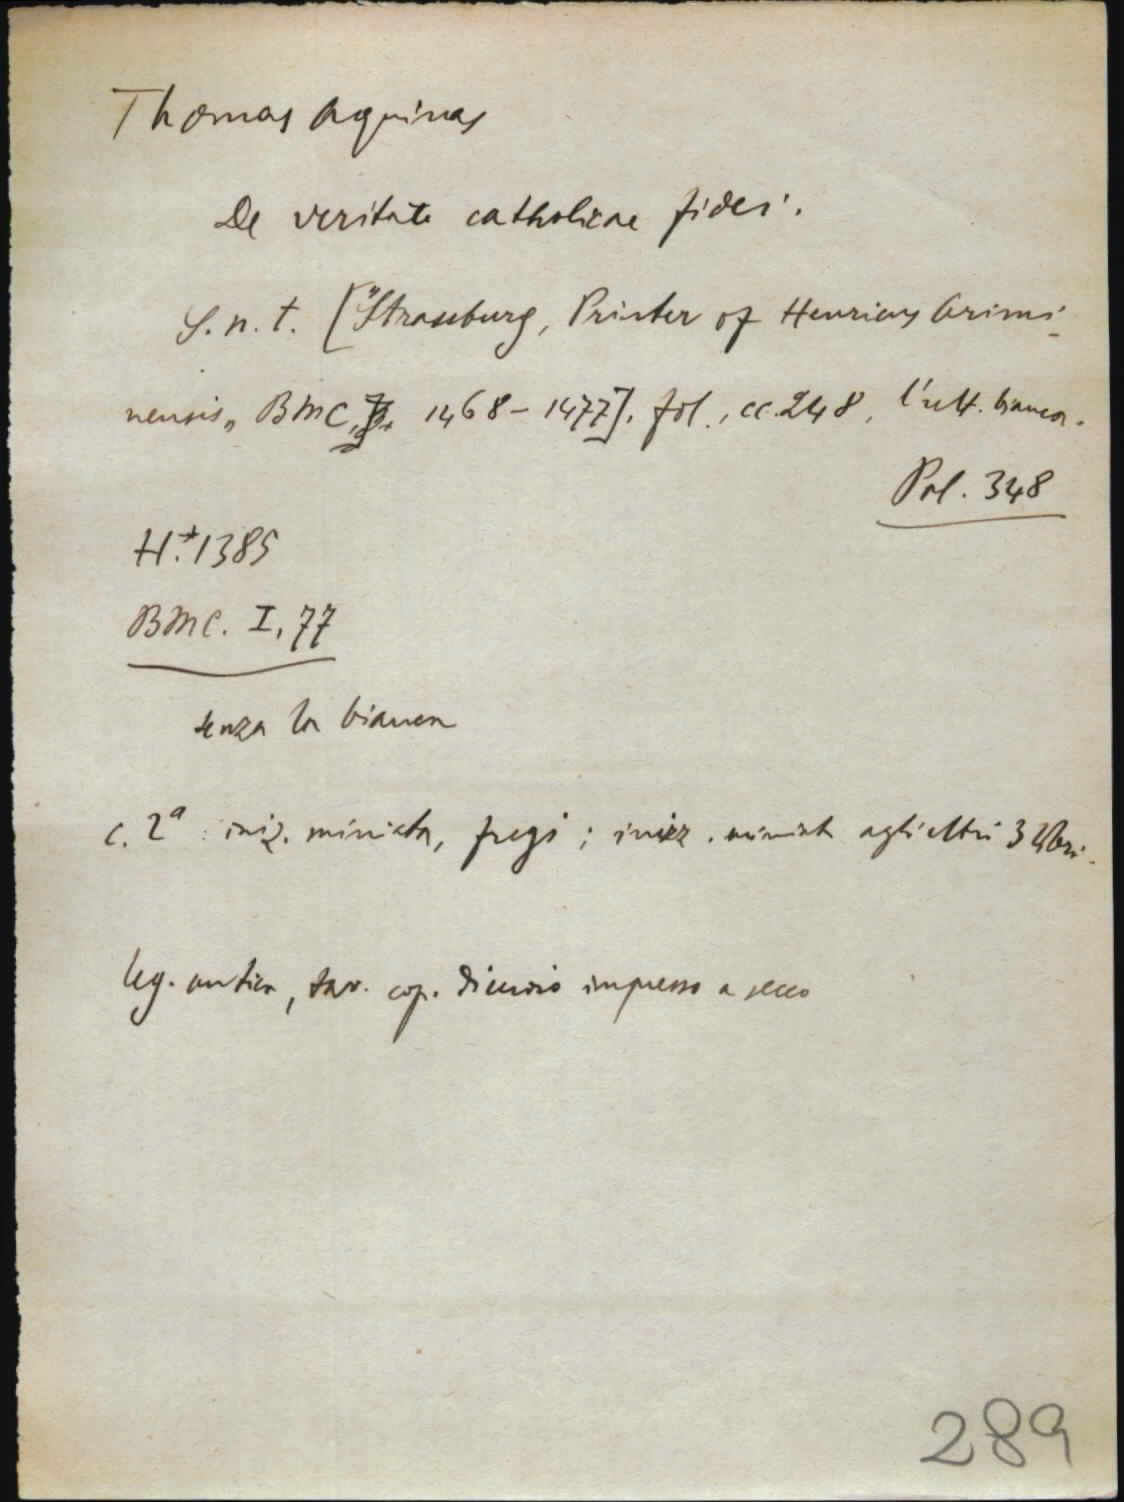 Thomas Aquinas
De veritate catholicae fidei.
S. n. t. ["Strassburg, Printer of Henricus Arimi-
nensis„ BMC, 1468-1477]. fol., cc. 248, l'ult. bianca.
Pol. 348
H.* 1385
BMC. I, 77
senza la bianca
c. 2ª: iniz. miniata, fregi; inizz. miniate agli altri 3 libri.
leg. antica, tav. cop. di cuoio impresso a secco
289